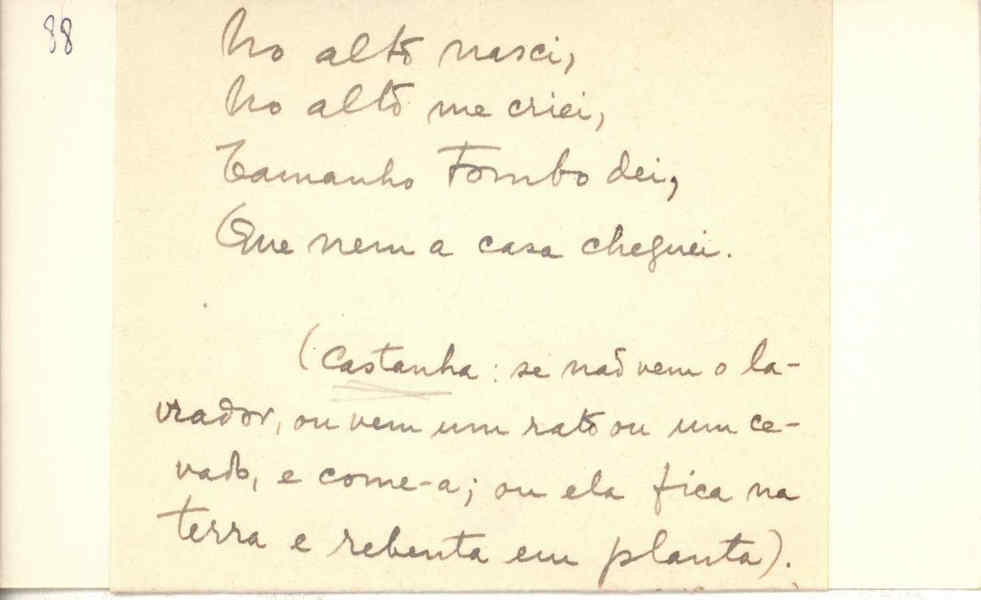 88
No alto nasci,
No alto me criei,
Tamanho Tombo dei,
Que nem a casa cheguei.
(Castanha: se não vem o la-
vrador, ou vem um rato ou um ce-
vado, e come-a; ou ela fica na
terra e rebenta em planta).